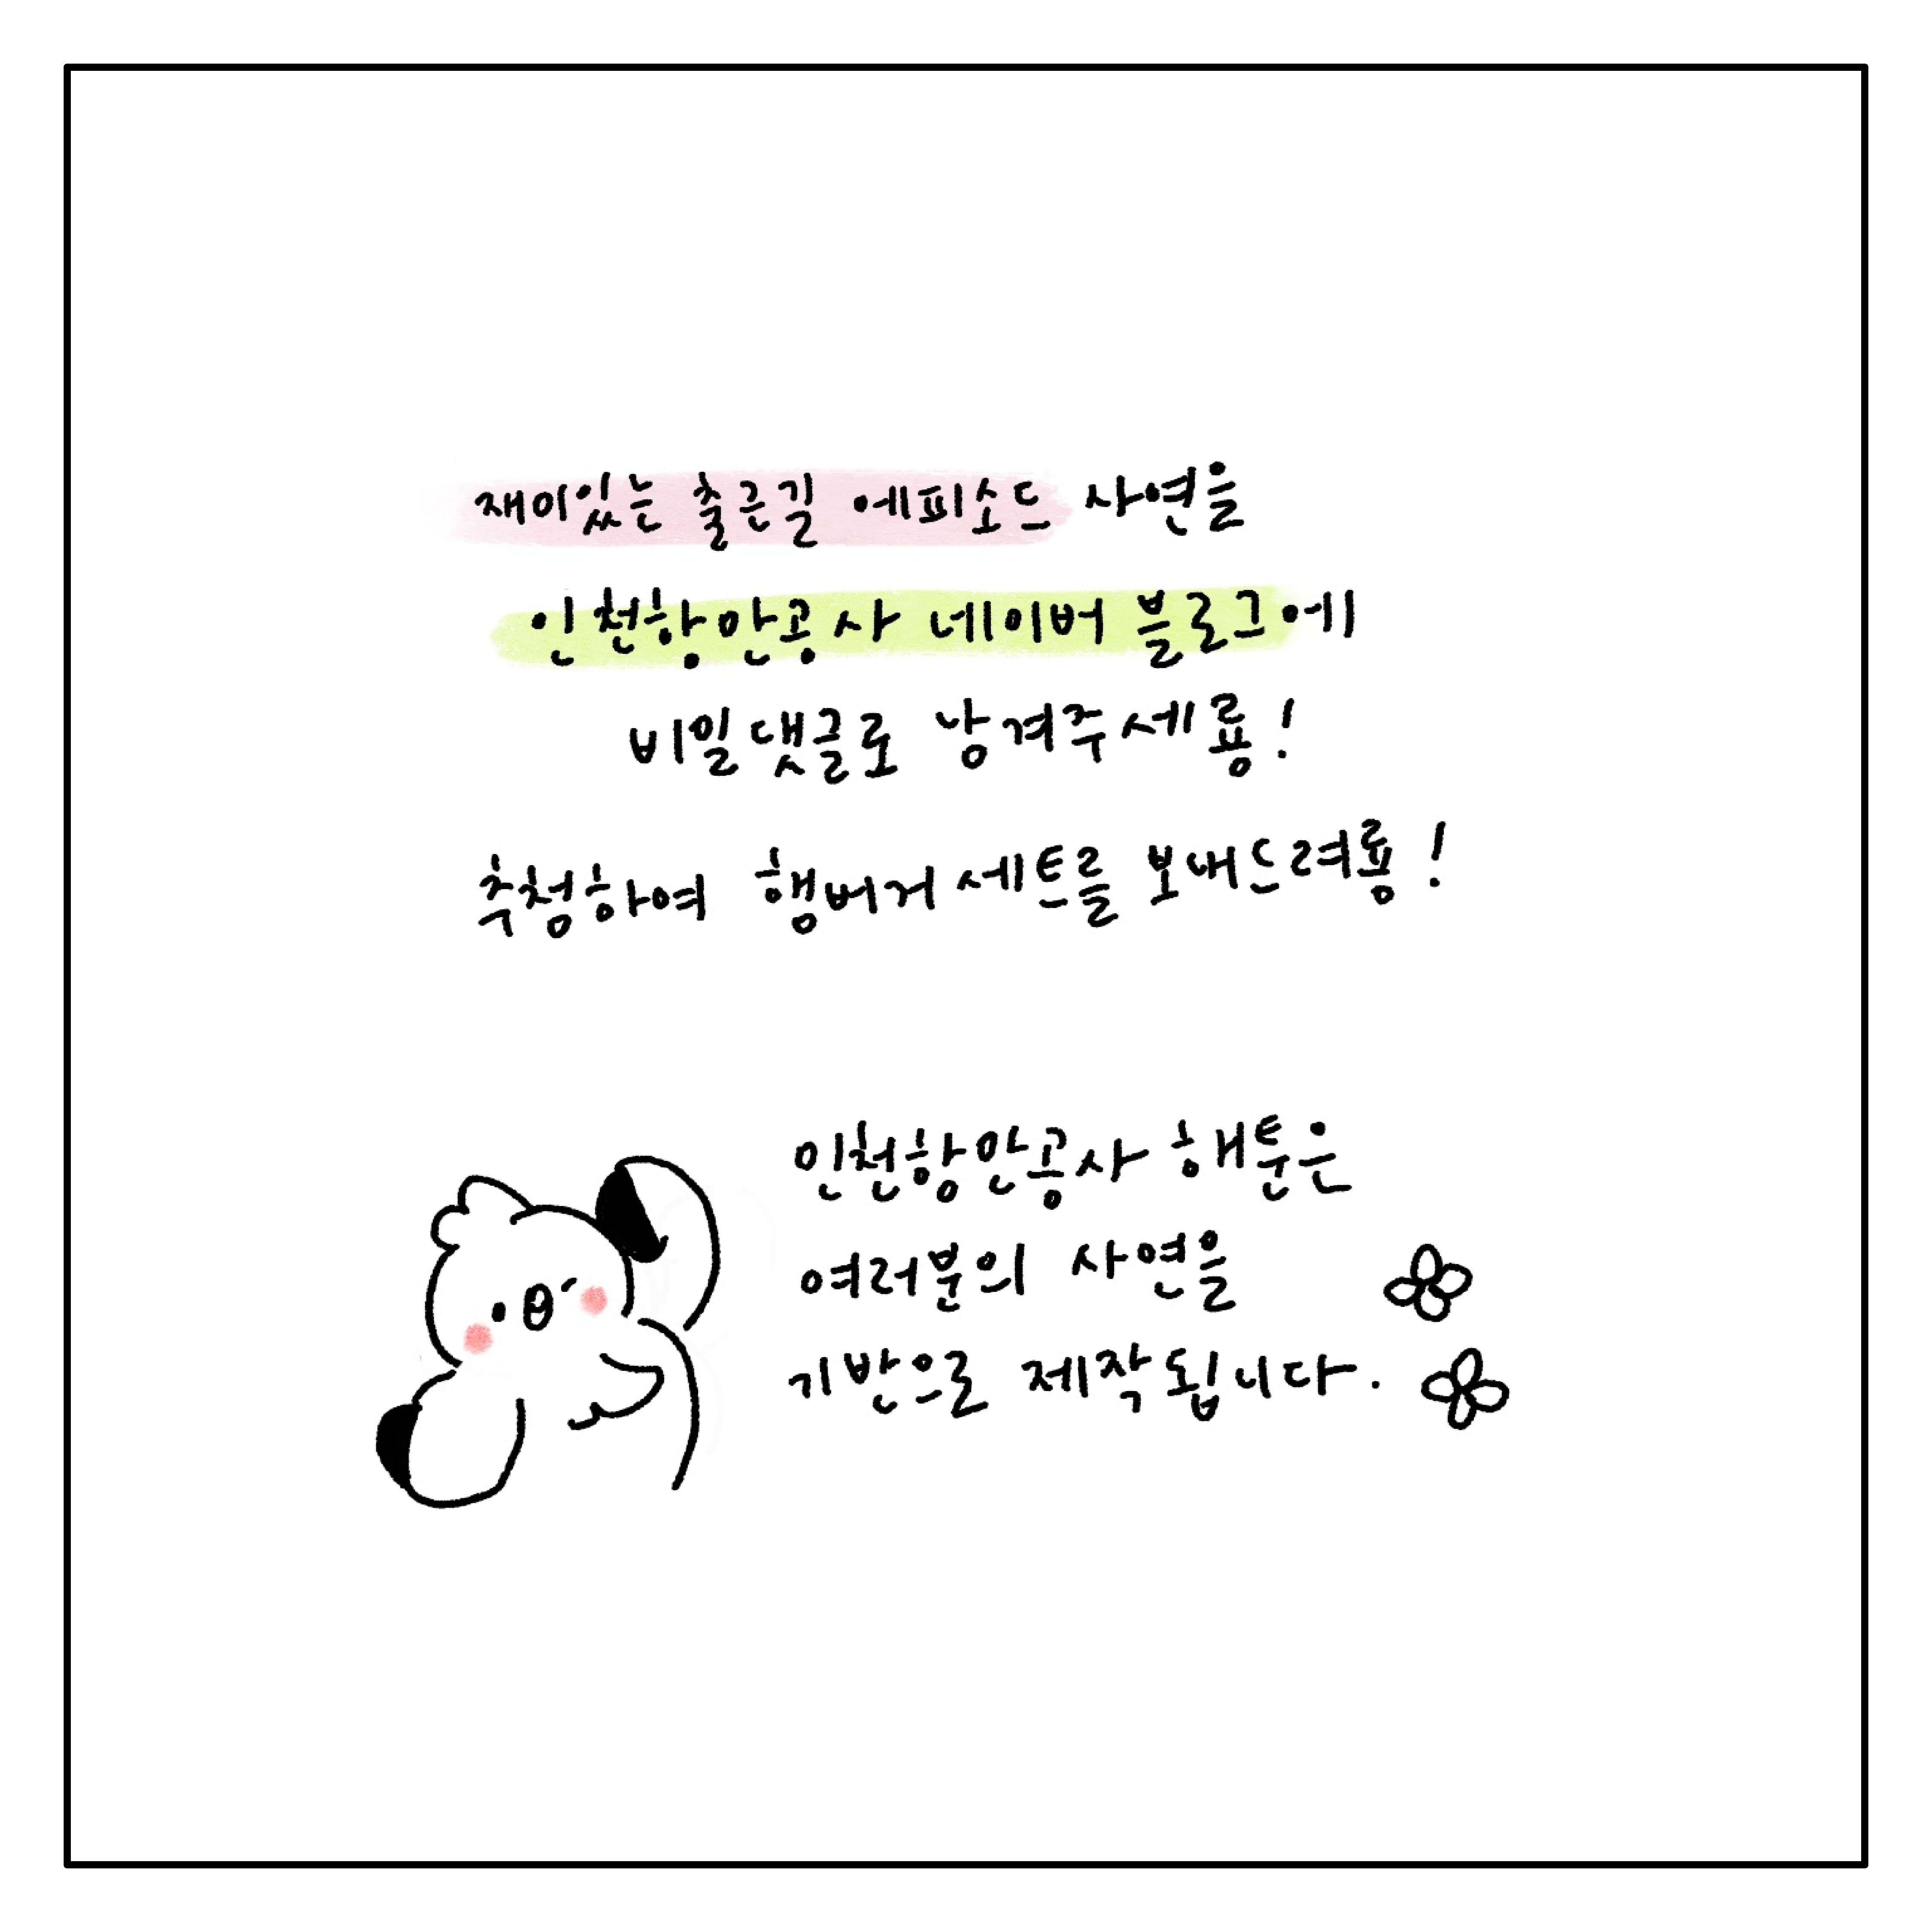 재미있는 출근길 에피소드 사연을
인천항만공사 네이버 블로그에
비밀댓글로 남겨주세룡!
추첨하여 햄버거세트를 보내드려룡!
인천항만공사 해툰은
여러분의 사연을
기반으로 제작됩니다.